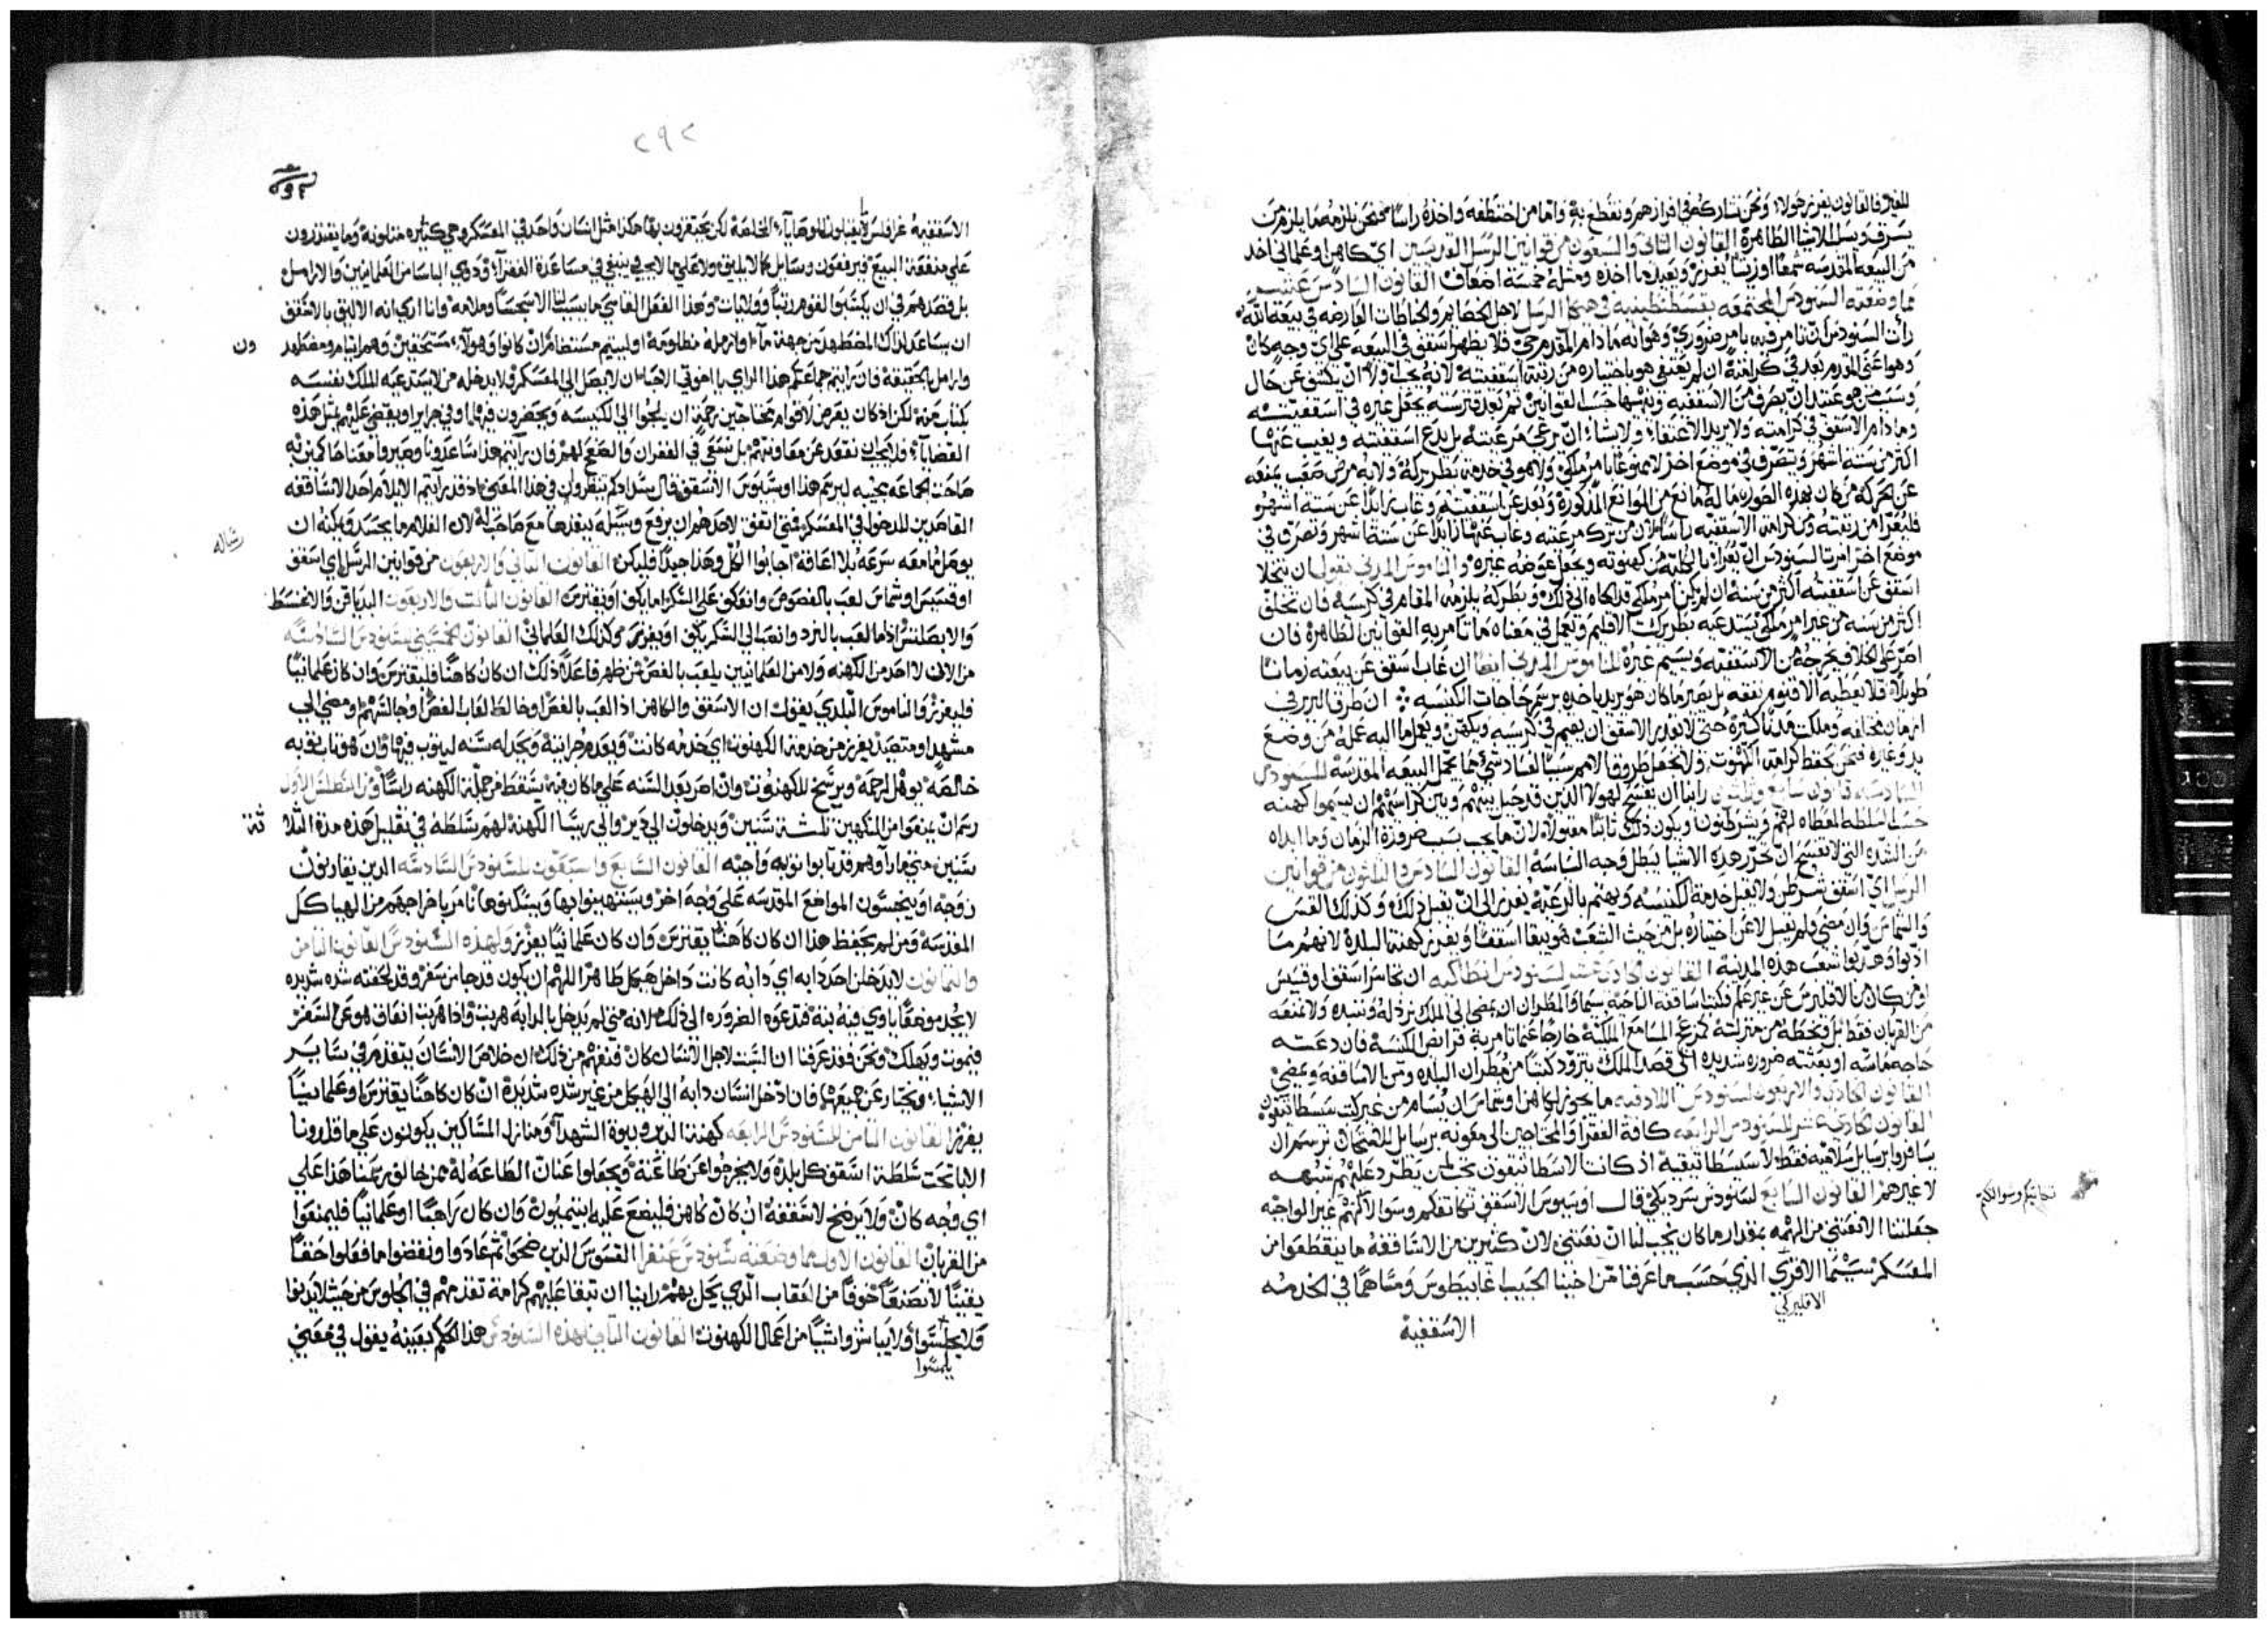 للغير فالقانون يفرز هولاء ونحن نشاركه في افرازهم ونقطع به واما من اختطفه واخذه راسا فنحن نلزمه بما يلزم من
يسرق ويسلب الاشيا الطاهرة القانون الثاني والسبعون من قوانين الرسل القديسين اي كاهن او علماني اخذ
من البيعة المقدسه شمعًا او زيتًا يفرز ويعيد ما اخذه ومثله خمسة اضعاف القانون السادس عشر
مما وضعته السنودس المجتمعه بقسطنطينيه في هيكل الرسل لاجل الخصايم والخباطات العارضه في بيعة الله
رات السنودس ان تامر فيه بامر ضروري وهو انه ما دام المقدم حي فلا يظهر اسقف في البيعه علي اي وجه كان
وهو اعني المقدم بعد في كرامته ان لم يعتفي هو باختياره من رتبة اسقفيته لانه يجب اولا ان يكشف عن حال
وسبب من هو عتيد ان يصرف من الاسقفيه وتنهيها حسب القوانين ثم بعد قترسته يجعل غيره في اسقفيته
وما دام الاسقف في كرامته ولا يريد الاعتفاء ولا يشاء ان يرعي مرعيته بل يدع اسقفيته ويغيب عنها
اكثر من ستة اشهر وتصرف في موضع اخر لا ممنوعًا بامر ملكي ولا هو في خدمة بطريركه ولا به مرض صعب يمنعه
عن الحركة فمن كان بهذه الصوره ما له مانع من الموانع المذكورة وبعد عن اسقفيته وغاب زايدًا عن ستة اشهر
فليعرا من رتبته ومن كرامة الاسقفيه راسًا لان من ترك مرعيته وغاب عنها زايدًا عن ستة اشهر وتصرف في
موضع اخر امرت السنودس ان يعرا بالكليه من كهنوته ويجعل عوضه غيره والناموس المدني يقول ان يتخلا
اسقف عن اسقفيته اكثر من سنة ان لم يكن امر ملكي قد الجاه الي ذلك وبطركه يلزمه المقام في كرسيه فان تخلف
اكثر من سنه من غير امر ملكي يستدعيه بطريرك الاقليم ويعمل في معناه ما تامر به القوانين الطاهرة فان
اصر علي الخلاف يخرجه من الاسقفيه ويسيم غيره الناموس المدني ايضا ان غاب اسقف عن بيعته زمانًا
طويلًا فلا يعطيه الاقنوم نفقه بل يصير ما كان هو يريد ياخذه برسم حاجات الكنيسه ان طرق البربر في
ازمان مختلفه وملكت مدنًا كثيرة حتي لا يقدر الاسقف ان يقيم في كرسيه ويكهن ويعمل ما اليه عمله من وضع
يد وغيره فنحن نحفظ كرامة الكهنوت ولا نجعل طروق الامم سببًا لفساد شي مما يحمل البيعه المقدسه للسنودس
السادسه قانون سابع وثلثون راينا ان نفسح لهولا الذين قد حيل بينهم وبين كراسيهم ان يسيموا كهنه
حسب السلطه المعطاه لهم ويشرطنون ويكون ذلك ثابتًا مقبولًا لان ما يجب بسبب ضرورة الزمان وما ابداه
من الشده التي لا نفسح ان تحرر هذه الاشيا يبطل وجه السياسه القانون السادس والثلثون من قوانين
الرسل اي اسقف شرطن ولا يقبل خدمة الكنيسه ويهتم بالرعية يفرز الي ان يقبل ذلك وكذلك القس
والشماس وان مضي ولم يقبل لا عن اختياره بل من خبث الشعب هو يبقا اسقفًا ويفرز كهنة البلدة لانهم ما
ادبوا وهذبوا شعب هذه المدينة القانون الحادي عشر لسنودس انطاكيه ان تجاسر اسقف او قسيس
او من كان من الاقليرس عن غير علم وكتب اساقفة الناحية سيما والمطران ان يمضي الي الملك نرذله ونبيده ولا نمنعه
من القربان فقط بل ونحطه من منزلته كمزعج المسامع الملكية خارجًا عما تامر به فرايض الكنيسة فان دعته
حاجه ماسه او بعثته ضرورة شديدة الي قصد الملك يتزود كتبًا من مطران البلده ومن الاساقفه ويمضي
القانون الحادي والاربعون لسنودس اللادقيه ما يجوز لكاهن او شماس ان يسام من غير كتب سسطاتيقون
القانون الحادي عشر للسنودس الرابعه كافة الفقرا والمحتاجين الي معونه برسايل للامتحان نرسم ان
يسافروا برسايل سلاميه فقط لا سسطاتيقية اذ كانت السسطاتيقون تحت لمن تطرد عليهم شبهه
لا غيرهم القانون السابع لسنودس سرديكي قال اوسيوس الاسقف تكاتفكم وسوالكم غير الواجبه
جعلتنا الا نقتني من الهمه بمقدار ما كان يجب لنا ان نقتني لان كثيرين من الاساقفة ما ينقطعوا من
المعسكر سيما الافري الذي حسب ما عرفنا من اخينا الحبيب اغابيطوس ومساهمًا في الخدمه
الافليركي
الاسقفية
تكاتبكم وسوالكم
٢٩٢
الاسقفيه غرافلس لا يقبلون الوصايا الخلاصة لكن يجيفزون بها هكذا مثل انسان واحد في المعسكر وهي كثيره متلونه وما يقتدرون
علي منفعة البيع فيرفعون وسايل كما لا يليق ولا علي ما لا يجي في ينبغي في مساعدة الفقراء وذوي الباسا من العلمانيين والارامل
بل قصدهم في ان يكسبوا لقوم رتبًا وولايات وهذا الفعل القاسي ما يسبب لنا الا سجسًا وملامه وانا اري انه الاليق بالاسقف
ان يساعد لذاك المضطهد من جهة ما او ارملة مظلومة او ليتيم مستضام ان كانوا هولاء مستحقين وهم ايتام ومضطهد
ون
وارامل بالحقيقة فان رايتم جماعتكم هذا الراي يا اخوتي الاحباء ان لا يصل الي المعسكر ولا يدخله من لا يستدعيه الملك بنفسه
بكتاب منه لكن اذ كان يعرض لاقوام محتاجين رحمة ان يلجوا الي الكنيسه ويحضرون فيها او في جزاير او يقضي عليهم بمثل هذه
القضايا فلا يجب ان نقعد عن معاونتهم بل نسعي في الغفران والصفح لهم فان رايتم هذا ساعدونا وصيروا معنا حاكمين به
صاحت الجماعه بحيبه ليرتم هذا اوسيوس الاسقف قال سندادكم تنظرون في هذا المعني اذ قد رايتم الا يلام احد الاساقفه
القاصدين للدخول في المعسكر فمتي اتفق لاحدهم ان يرفع وسيله ينفذها مع صاحب له لان الغلام ما يحسد ويمكنه ان
رساله
يوصل ما معه سرعه بلا اعاقة اجابوا الكل وهذا جيدًا فليكن القانون الثاني والاربعون من قوانين الرسل اي اسقف
او قسيس او شماس لعب بالفصوص وانعكف علي السكر اما يكف او يقترس القانون الثالث والاربعون البدياقن والاغنسط
والابصلتس اذا ما لعب بالنرد وانصب الي السكر يكف او يفرز وكذلك العلماني القانون الخمسين لسنودس السادسه
من الان لا احد من الكهنه ولا من العلمانيين يلعب بالفص فمن ظهر فاعلا ذلك ان كان كاهنًا فليقترس وان كان علمانيًا
فليفرز والناموس البلدي يقول ان الاسقف والكاهن اذا لعب بالفص او خالط لعاب الفص او جالستهم او مضي الي
مشهد او متصيد يفرز من خدمة الكهنوت اي خدمه كانت ويعدم جرايته ويجد له سنه ليتوب فيها وان هو تاب توبه
خالصة يوهل الرحمة ويرشح للكهنوت وان اصر بعد السنه علي ما كان فيه يسقط من جملة الكهنه راسًا ومن المطلس الاول
رسم ان ينفوا من المتكهين ثلثة سنين ويدخلون الي دير والي ريسا الكهنة لهم سلطه في تقليل هذه مدة الثلا
ثة
سنين متي ما راوهم قد تابوا توبه واجبه القانون السابع والسبعون للسنودس السادسه الذين يقاربون
زوجة او ينجسون المواضع المقدسه علي وجه اخر ويستهينوا بها ويسكنوها نامر باخراجهم من الهياكل
المقدسة ومن لم يحفظ هذا ان كان كاهنًا يقترس وان كان علمانيًا يفرز ولهذه السنودس القانون الثامن
والثمانون لا يدخلن احد دابه اي دابه كانت داخل هيكل طاهرًا اللهم ان يكون قد جا من سفر وقد لحقته شده شديده
لا يجد موضعًا ياوي فيه بته فتدعوه الضروره الي ذلك لانه متي لم يدخل بالدابة هربت واذا هربت انعاق هو عن السفر
فيموت ويهلك ونحن فقد عرفنا ان السبت لاجل الانسان كان فنفهم من ذلك ان خلاص الانسان يتقدم في ساير
الاشيا ويختار عن جميعها فان ادخل انسان دابه الي الهيكل من غير شده شديدة ان كان كاهنًا يقترس او علمانيًا
يفرز القانون الثامن للسنودس الرابعه كهنة الديور وبيوة الشهدا ومنازل المساكين يكونون علي ما قد رونا
الابا تحت سلطة اسقف كل بلدة ولا يخرجوا عن طاعته ويجعلوا عنان الطاعه له فمن خالف رسمنا هذا علي
اي وجه كان ولا يرضخ لاسقفه ان كان كاهن فليضع عليه ابيتيميون وان كان راهبًا او علمانيًا فليمنعوا
من القربان القانون الاول مما وضعته سنودس عنقرا القسوس الذين ضحوا ثم عادوا ونقضوا ما فعلوا حقًا
يقينًا لا تصنعًا خوفًا من العقاب الذي يحل بهم راينا ان تبقا عليهم كرامة تقدمهم في الجلوس من حيث لا يدنوا
ولا يجلسوا ولا يباشروا شيًا من اعمال الكهنوت القانون الثاني لهذه السنودس هذا الحكم بعينه يقول في معني
يلمسوا